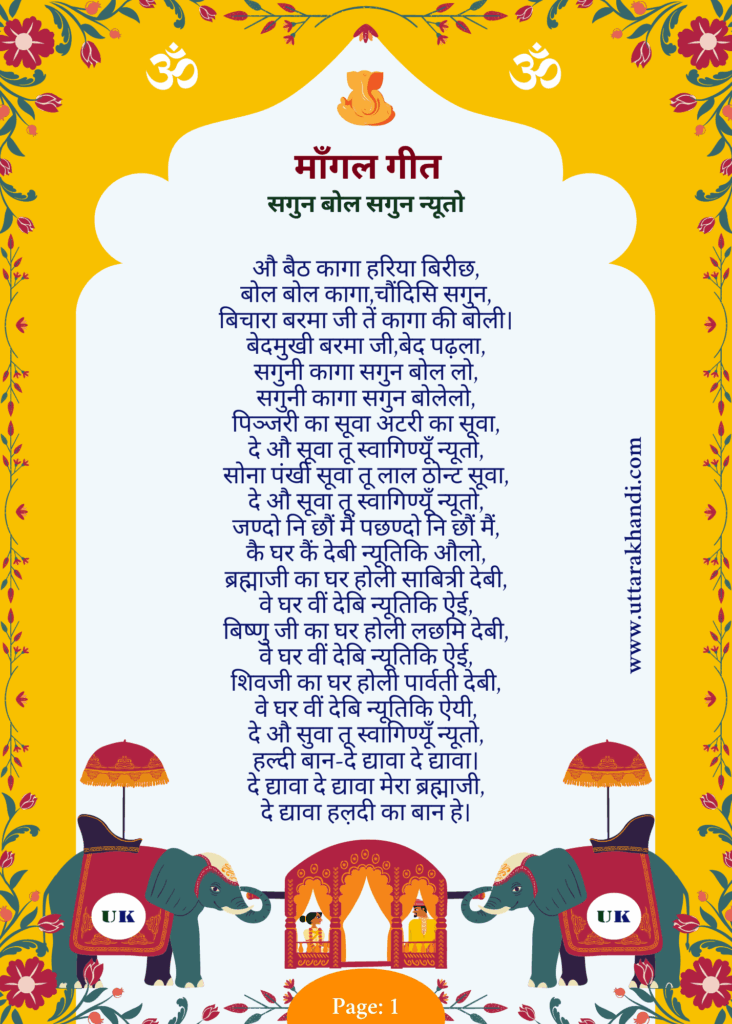 ॐ ॐ
माँगल गीत
सगुन बोल सगुन न्यूतो
औ बैठ कागा हरिया बिरीछ,
बोल बोल कागा,चौंदिसि सगुन,
बिचारा बरमा जी तें कागा की बोली।
बेदमुखी बरमा जी,बेद पढ़ला,
सगुनी कागा सगुन बोल लो,
सगुनी कागा सगुन बोलेलो,
पिञ्जरी का सूवा अटरी का सूवा,
दे औ सूवा तू स्वागिण्यूँ न्यूतो,
सोना पंखी सूवा तू लाल ठोन्ट सूवा,
दे औ सूवा तू स्वागिण्यूँ न्यूतो,
जण्दो नि छौं मैं पछण्दो नि छौं मैं,
कै घर कैं देबी न्यूतिकि औलो,
ब्रह्माजी का घर होली साबित्री देबी,
वे घर वीं देबि न्यूतिकि ऐई,
बिष्णु जी का घर होली लछमि देबी,
वे घर वीं देबि न्यूतिकि ऐई,
शिवजी का घर होली पार्वती देबी,
वे घर वीं देबि न्यूतिकि ऐयी,
दे औ सुवा तू स्वागिण्यूँ न्यूतो,
हल्दी बान-दे द्यावा दे द्यावा।
दे द्यावा दे द्यावा मेरा ब्रह्माजी,
दे द्यावा हल़दी का बान हे।
www.uttarakhandi.com
UK UK
Page: 1